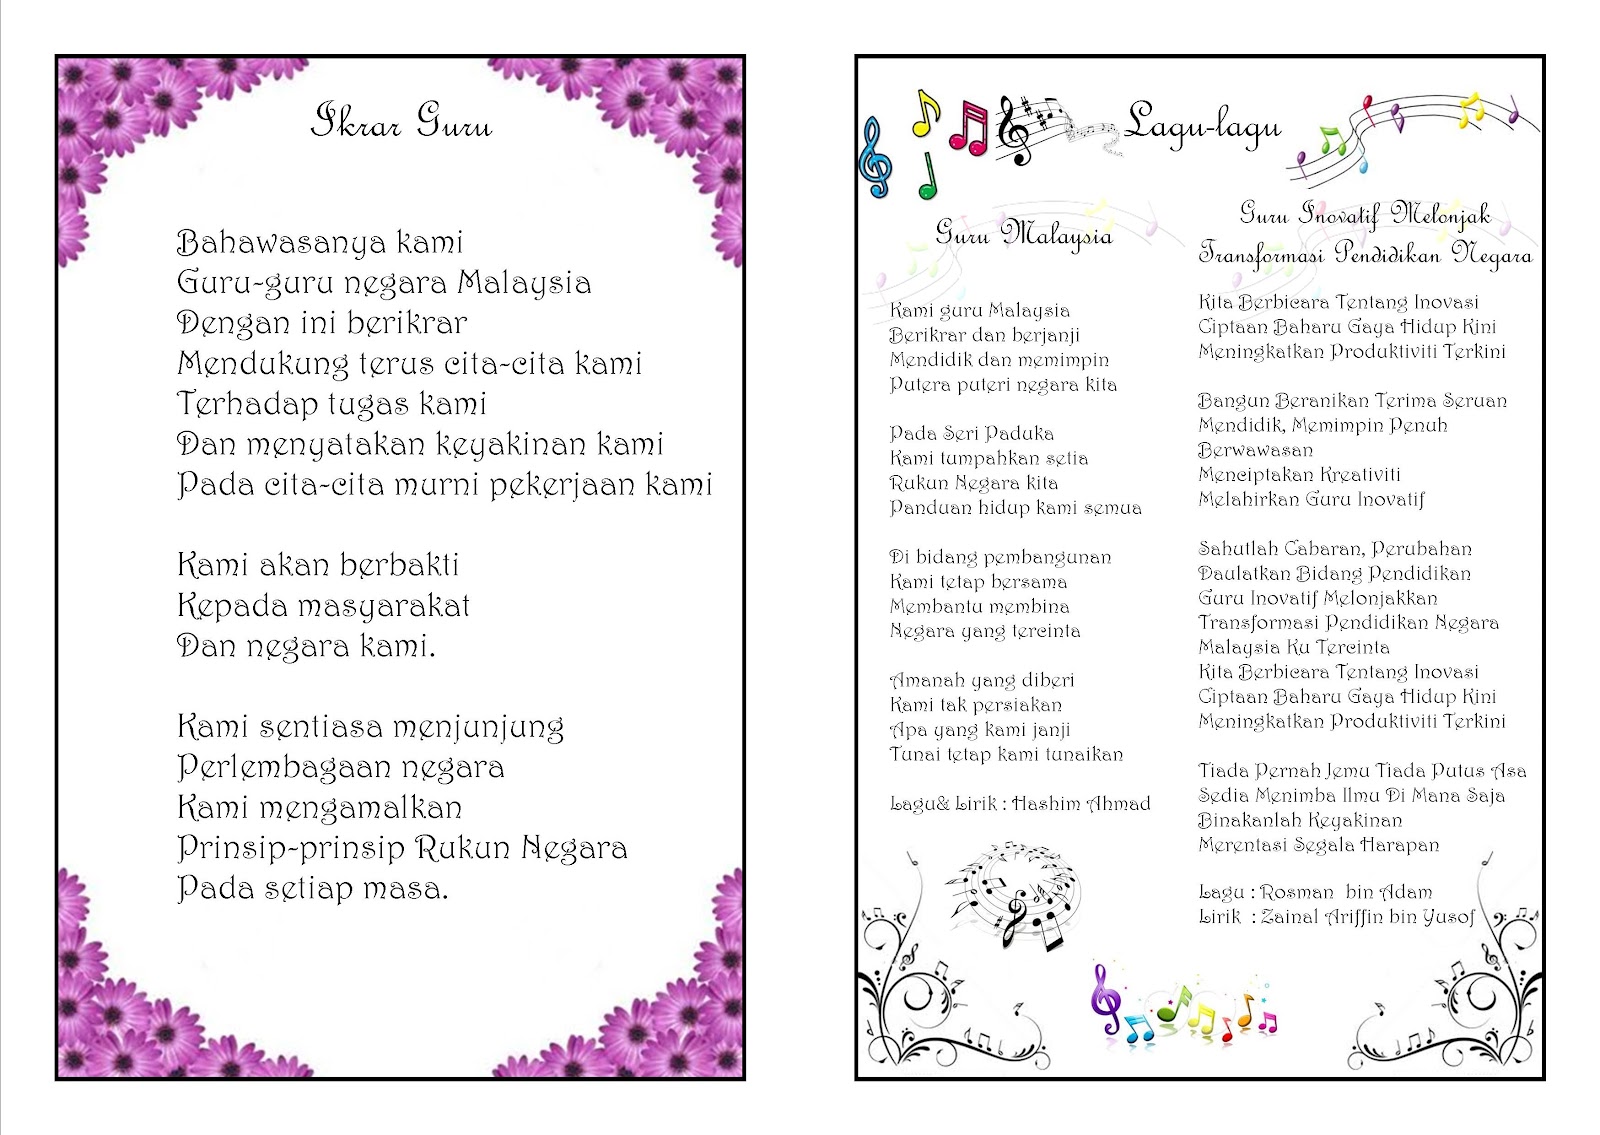 Ikrar Guru
Bahawasanya kami
Guru-guru negara Malaysia
Dengan ini berikrar
Mendukung terus cita-cita kami
Terhadap tugas kami
Dan menyatakan keyakinan kami
Pada cita-cita murni pekerjaan kami
Kami akan berbakti
Kepada masyarakat
Dan negara kami.
Kami sentiasa menjunjung
Perlembagaan negara
Kami mengamalkan
Prinsip-prinsip Rukun Negara
Pada setiap masa.
Lagu-lagu
Guru Malaysia
Kami guru Malaysia
Berikrar dan berjanji
Mendidik dan memimpin
Putera puteri negara kita
Pada Seri Paduka
Kami tumpahkan setia
Rukun Negara kita
Panduan hidup kami semua
Di bidang pembangunan
Kami tetap bersama
Membantu membina
Negara yang tercinta
Amanah yang diberi
Kami tak persiakan
Apa yang kami janji
Tunai tetap kami tunaikan
Lagu& Lirik : Hashim Ahmad
Guru Inovatif Melonjak
Transformasi Pendidikan Negara
Kita Berbicara Tentang Inovasi
Ciptaan Baharu Gaya Hidup Kini
Meningkatkan Produktiviti Terkini
Bangun Beranikan Terima Seruan
Mendidik, Memimpin Penuh
Berwawasan
Menciptakan Kreativiti
Melahirkan Guru Inovatif
Sahutlah Cabaran, Perubahan
Daulatkan Bidang Pendidikan
Guru Inovatif Melonjakkan
Transformasi Pendidikan Negara
Malaysia Ku Tercinta
Kita Berbicara Tentang Inovasi
Ciptaan Baharu Gaya Hidup Kini
Meningkatkan Produktiviti Terkini
Tiada Pernah Jemu Tiada Putus Asa
Sedia Menimba Ilmu Di Mana Saja
Binakanlah Keyakinan
Merentasi Segala Harapan
Lagu : Rosman bin Adam
Lirik : Zainal Ariffin bin Yusof